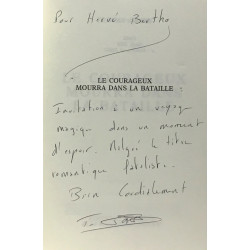 Pour Hervé Bertho
LE COURAGEUX
MOURRA DANS LA BATAILLE
Invitation à un voyage
magique dans un moment
d'espoir. Malgré le titre
romantique fataliste.
Bien Cordialement